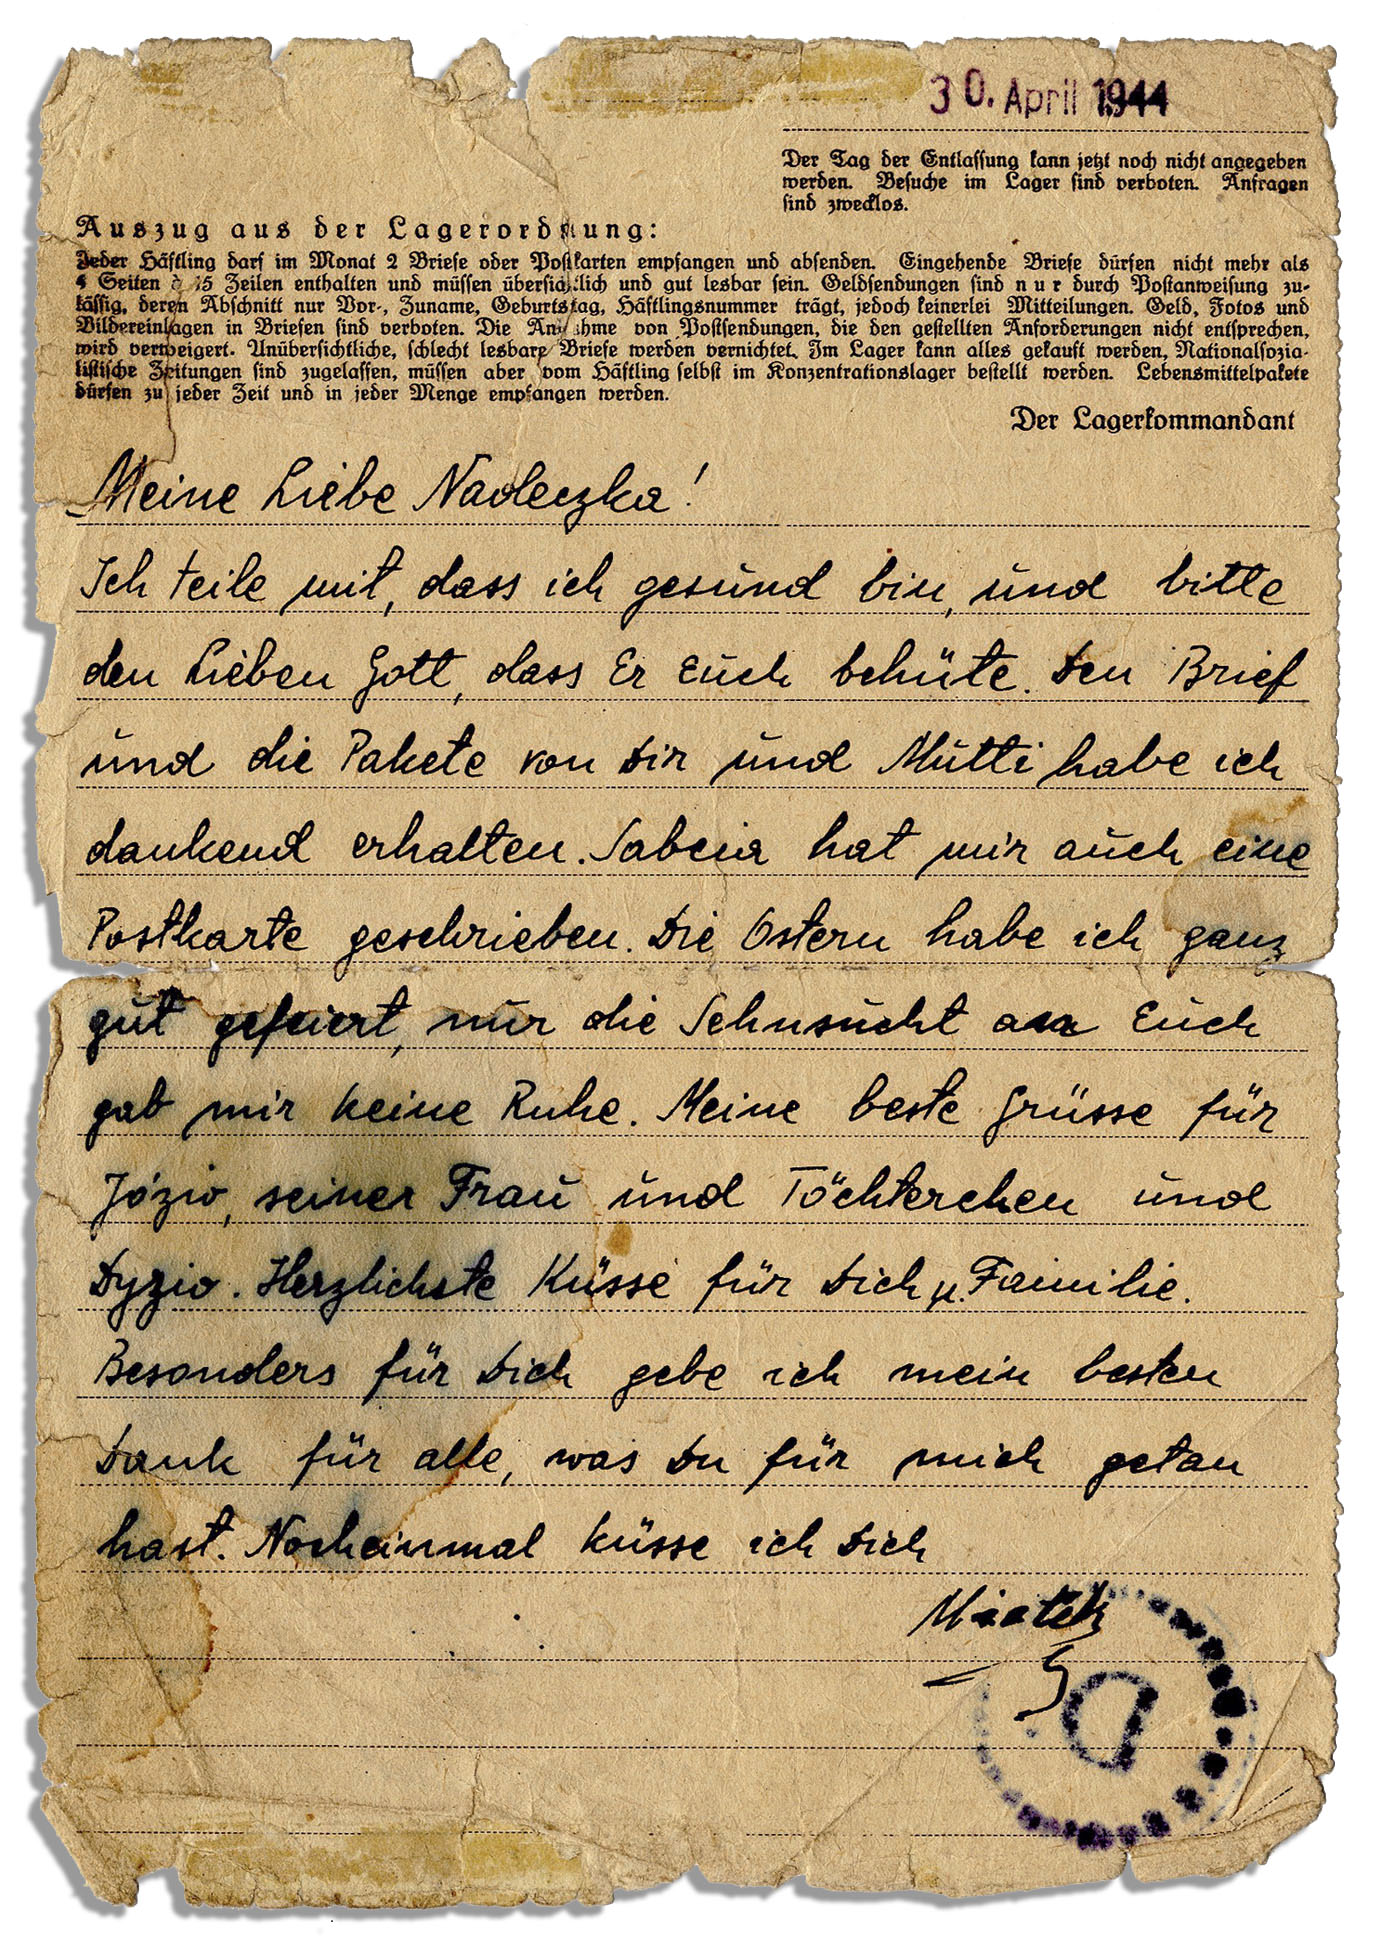 30. April 1944
Der Tag der Entlassung kann jetzt noch nicht angegeben
werden. Besuche im Lager sind verboten. Anfragen
sind zwecklos.
Auszug aus der Lagerordnung:
Jeder Häftling darf im Monat 2 Briefe oder Postkarten empfangen und absenden. Eingehende Briefe dürfen nicht mehr als
4 Seiten à 15 Zeilen enthalten und müssen übersichtlich und gut lesbar sein. Geldsendungen sind nur durch Postanweisung zu-
lässig, deren Abschnitt nur Vor-, Zuname, Geburtstag, Häftlingsnummer trägt, jedoch keinerlei Mitteilungen. Geld, Fotos und
Bildereinlagen in Briefen sind verboten. Die Annahme von Postsendungen, die den gestellten Anforderungen nicht entsprechen,
wird verweigert. Unübersichtliche, schlecht lesbare Briefe werden vernichtet. Im Lager kann alles gekauft werden, Nationalsozia-
listische Zeitungen sind zugelassen, müssen aber vom Häftling selbst im Konzentrationslager bestellt werden. Lebensmittelpakete
dürfen zu jeder Zeit und in jeder Menge empfangen werden.
Der Lagerkommandant
Meine Liebe Nadeczka!
Ich teile mit, dass ich gesund bin, und bitte
den Lieben Gott, dass Er Euch behüte. Den Brief
und die Pakete von Dir und Mutti habe ich
dankend erhalten. Sabcia hat mir auch eine
Postkarte geschrieben. Die Ostern habe ich ganz
gut gefeiert, nur die Sehnsucht an Euch
gab mir keine Ruhe. Meine beste Grüsse für
Józio, seiner Frau und Töchterchen und
Dyzio. Herzlichste Küsse für Dich u. Familie.
Besonders für Dich gebe ich mein besten
Dank für alle, was Du für mich getan
hast. Nocheinmal küsse ich Dich
Mietek
D